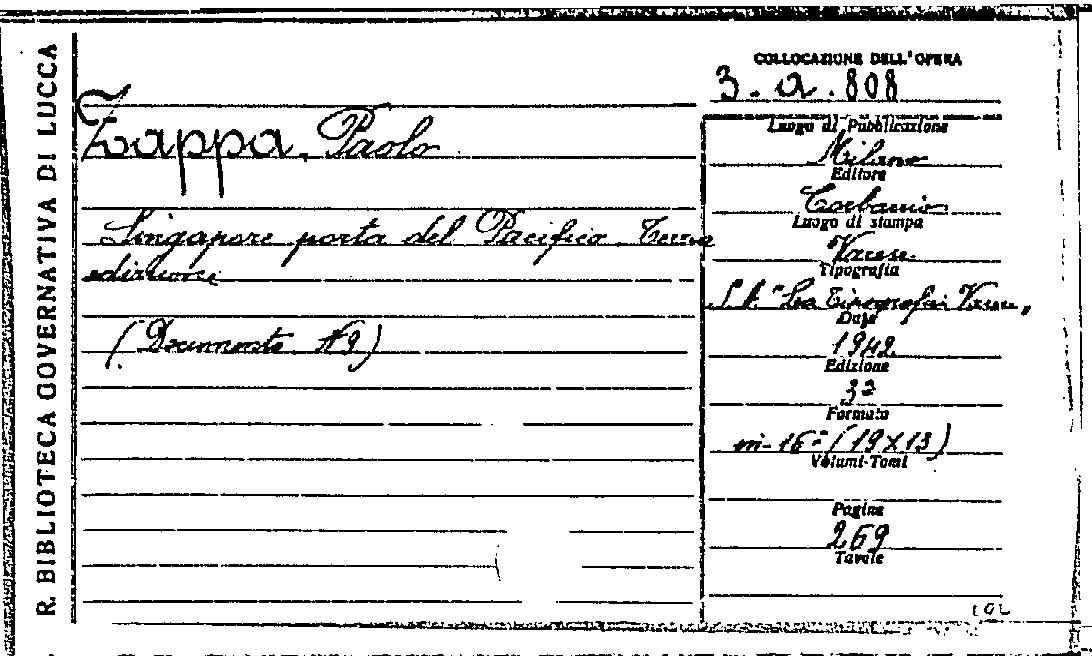 R. BIBLIOTECA GOVERNATIVA DI LUCCA
COLLOCAZIONE DELL'OPERA
3. a. 808
Zappa, Paolo
Singapore porta del Pacifico. Terza
edizione
(Documento N 9)
Luogo di Pubblicazione
Milano
Editore
Corbaccio
Luogo di stampa
Varese
Tipografia
S. A. "La Tipografica Varese"
Data
1942
Edizione
3ª
Formato
in-16° (19 X 13)
Volumi-Tomi
Pagine
269
Tavole